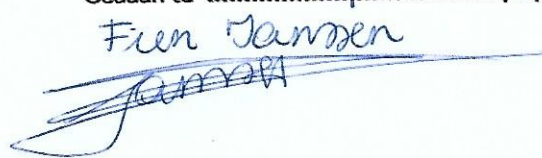 Fien Janssen
Janssen